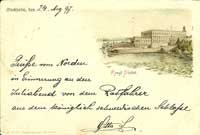 Stockholm, den 24. Aug 97.
Kongl. Slottet
Grüße vom Norden
in Erinnerung an den
von dem Radfahrer
aus dem königlich schwedischen Schlosse
Otto